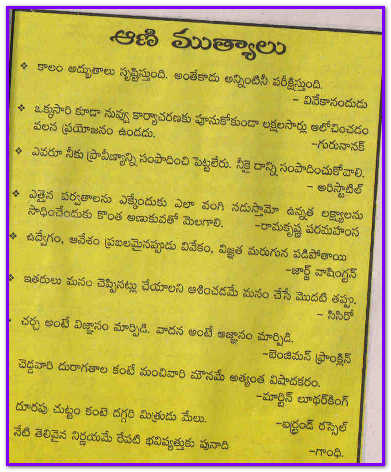 ఆణి ముత్యాలు
❖ కాలం అద్భుతాలు సృష్టిస్తుంది. అంతేకాదు అన్నింటినీ పరీక్షిస్తుంది.
– వివేకానందుడు
❖ ఒక్కసారి కూడా నువ్వు కార్యాచరణకు పూనుకోకుండా లక్షలసార్లు ఆలోచించడం
వలన ప్రయోజనం ఉండదు. –గురునానక్
❖ ఎవరూ నీకు ప్రావీణ్యాన్ని సంపాదించి పెట్టలేరు. నీకై దాన్ని సంపాదించుకోవాలి.
– అరిస్టాటిల్
❖ ఎత్తైన పర్వతాలను ఎక్కేందుకు ఎలా వంగి నడుస్తామో ఉన్నత లక్ష్యాలను
సాధించేందుకు కొంత అణుకువతో మెలగాలి. –రామకృష్ణ పరమహంస
❖ ఉద్వేగం, ఆవేశం ప్రబలమైనప్పుడు వివేకం, విజ్ఞత మరుగున పడిపోతాయి
–జార్జ్ వాషింగ్టన్
❖ ఇతరులు మనం చెప్పినట్లు చేయాలని ఆశించడమే మనం చేసే మొదటి తప్పు.
– సిసిరో
చర్చ అంటే విజ్ఞానం మార్పిడి. వాదన అంటే అజ్ఞానం మార్పిడి.
–బెంజిమన్ ఫ్రాంక్లిన్
చెడ్డవారి దురాగతాల కంటే మంచివారి మౌనమే అత్యంత విషాదకరం.
–మార్టిన్ లూథర్‌కింగ్
దూరపు చుట్టం కంటె దగ్గరి మిత్రుడు మేలు. –బర్ట్రండ్ రస్సెల్
నేటి తెలివైన నిర్ణయమే రేపటి భవిష్యత్తుకు పునాది
–గాంధి.